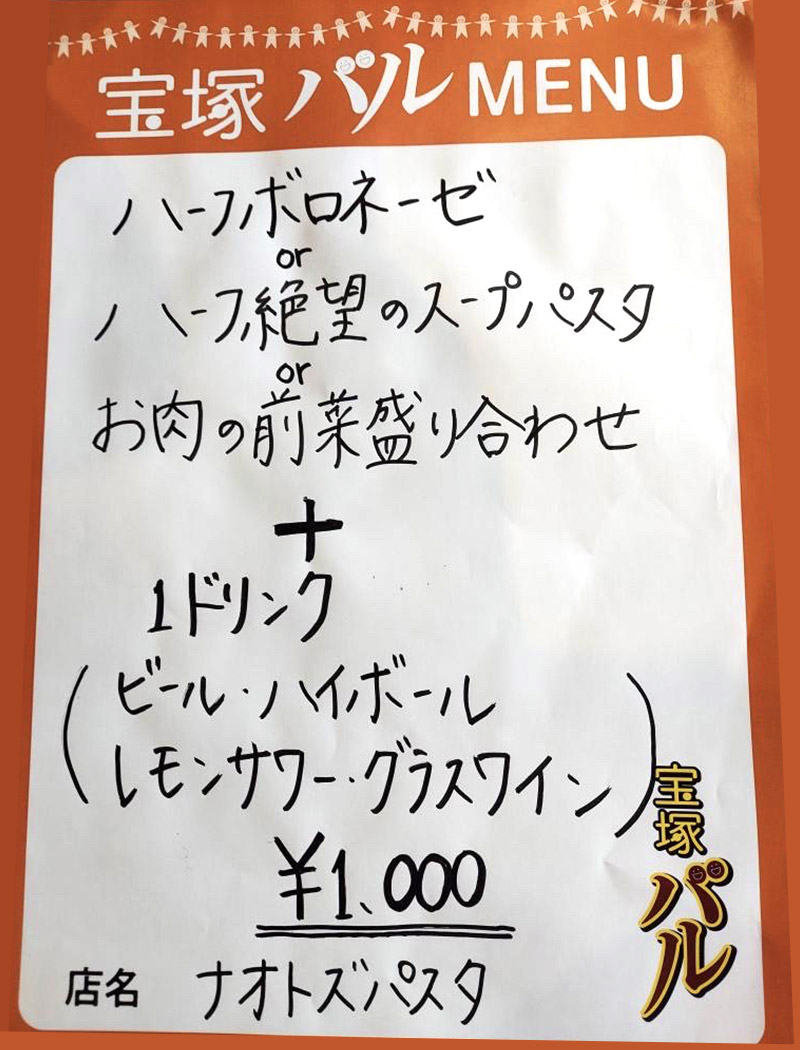 宝塚バルMENU
ハーフボロネーゼ
or
ハーフ絶望のスープパスタ
or
お肉の前菜盛り合わせ
+
1ドリンク
(ビール・ハイボール
レモンサワー・グラスワイン)
¥1,000
店名 ナオトズパスタ
宝塚
バル